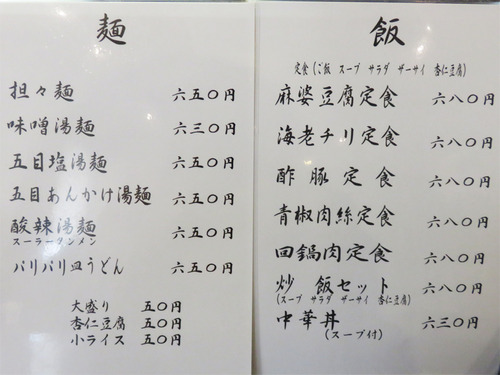 麺
担々麺 六五〇円
味噌湯麺 六三〇円
五目塩湯麺 六五〇円
五目あんかけ湯麺 六五〇円
酸辣湯麺 六五〇円
スーラータンメン
パリパリ皿うどん 六五〇円
大盛り 五〇円
杏仁豆腐 五〇円
小ライス 五〇円
飯
定食(ご飯 スープ サラダ ザーサイ 杏仁豆腐)
麻婆豆腐定食 六八〇円
海老チリ定食 六八〇円
酢豚定食 六八〇円
青椒肉絲定食 六八〇円
回鍋肉定食 六八〇円
炒飯セット 六八〇円
(スープ サラダ ザーサイ 杏仁豆腐)
中華丼 六三〇円
(スープ付)